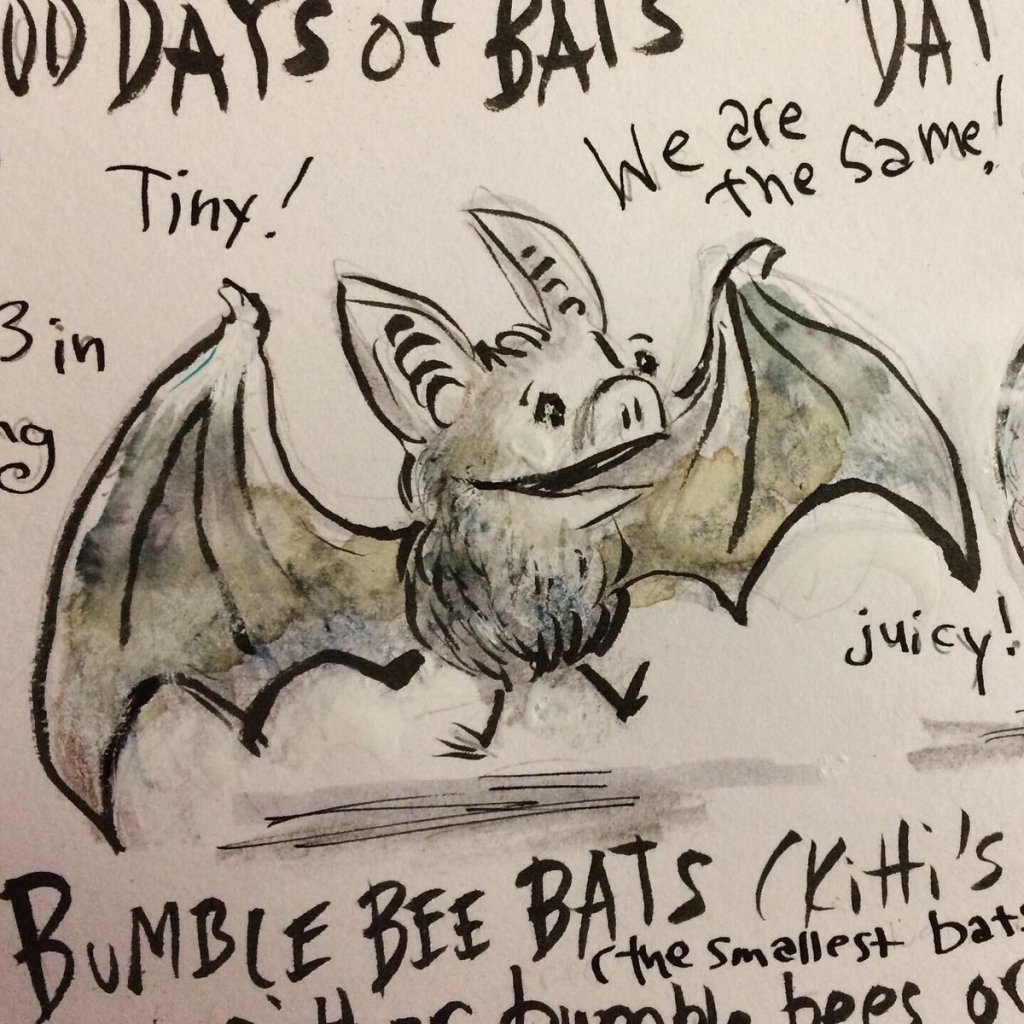 00 DAYS of BATS DAY
We are
the same!
Tiny!
3 in
ng
juicy!
BUMBLE BEE BATS (Kitti's
(the smallest bats
bumble bees or